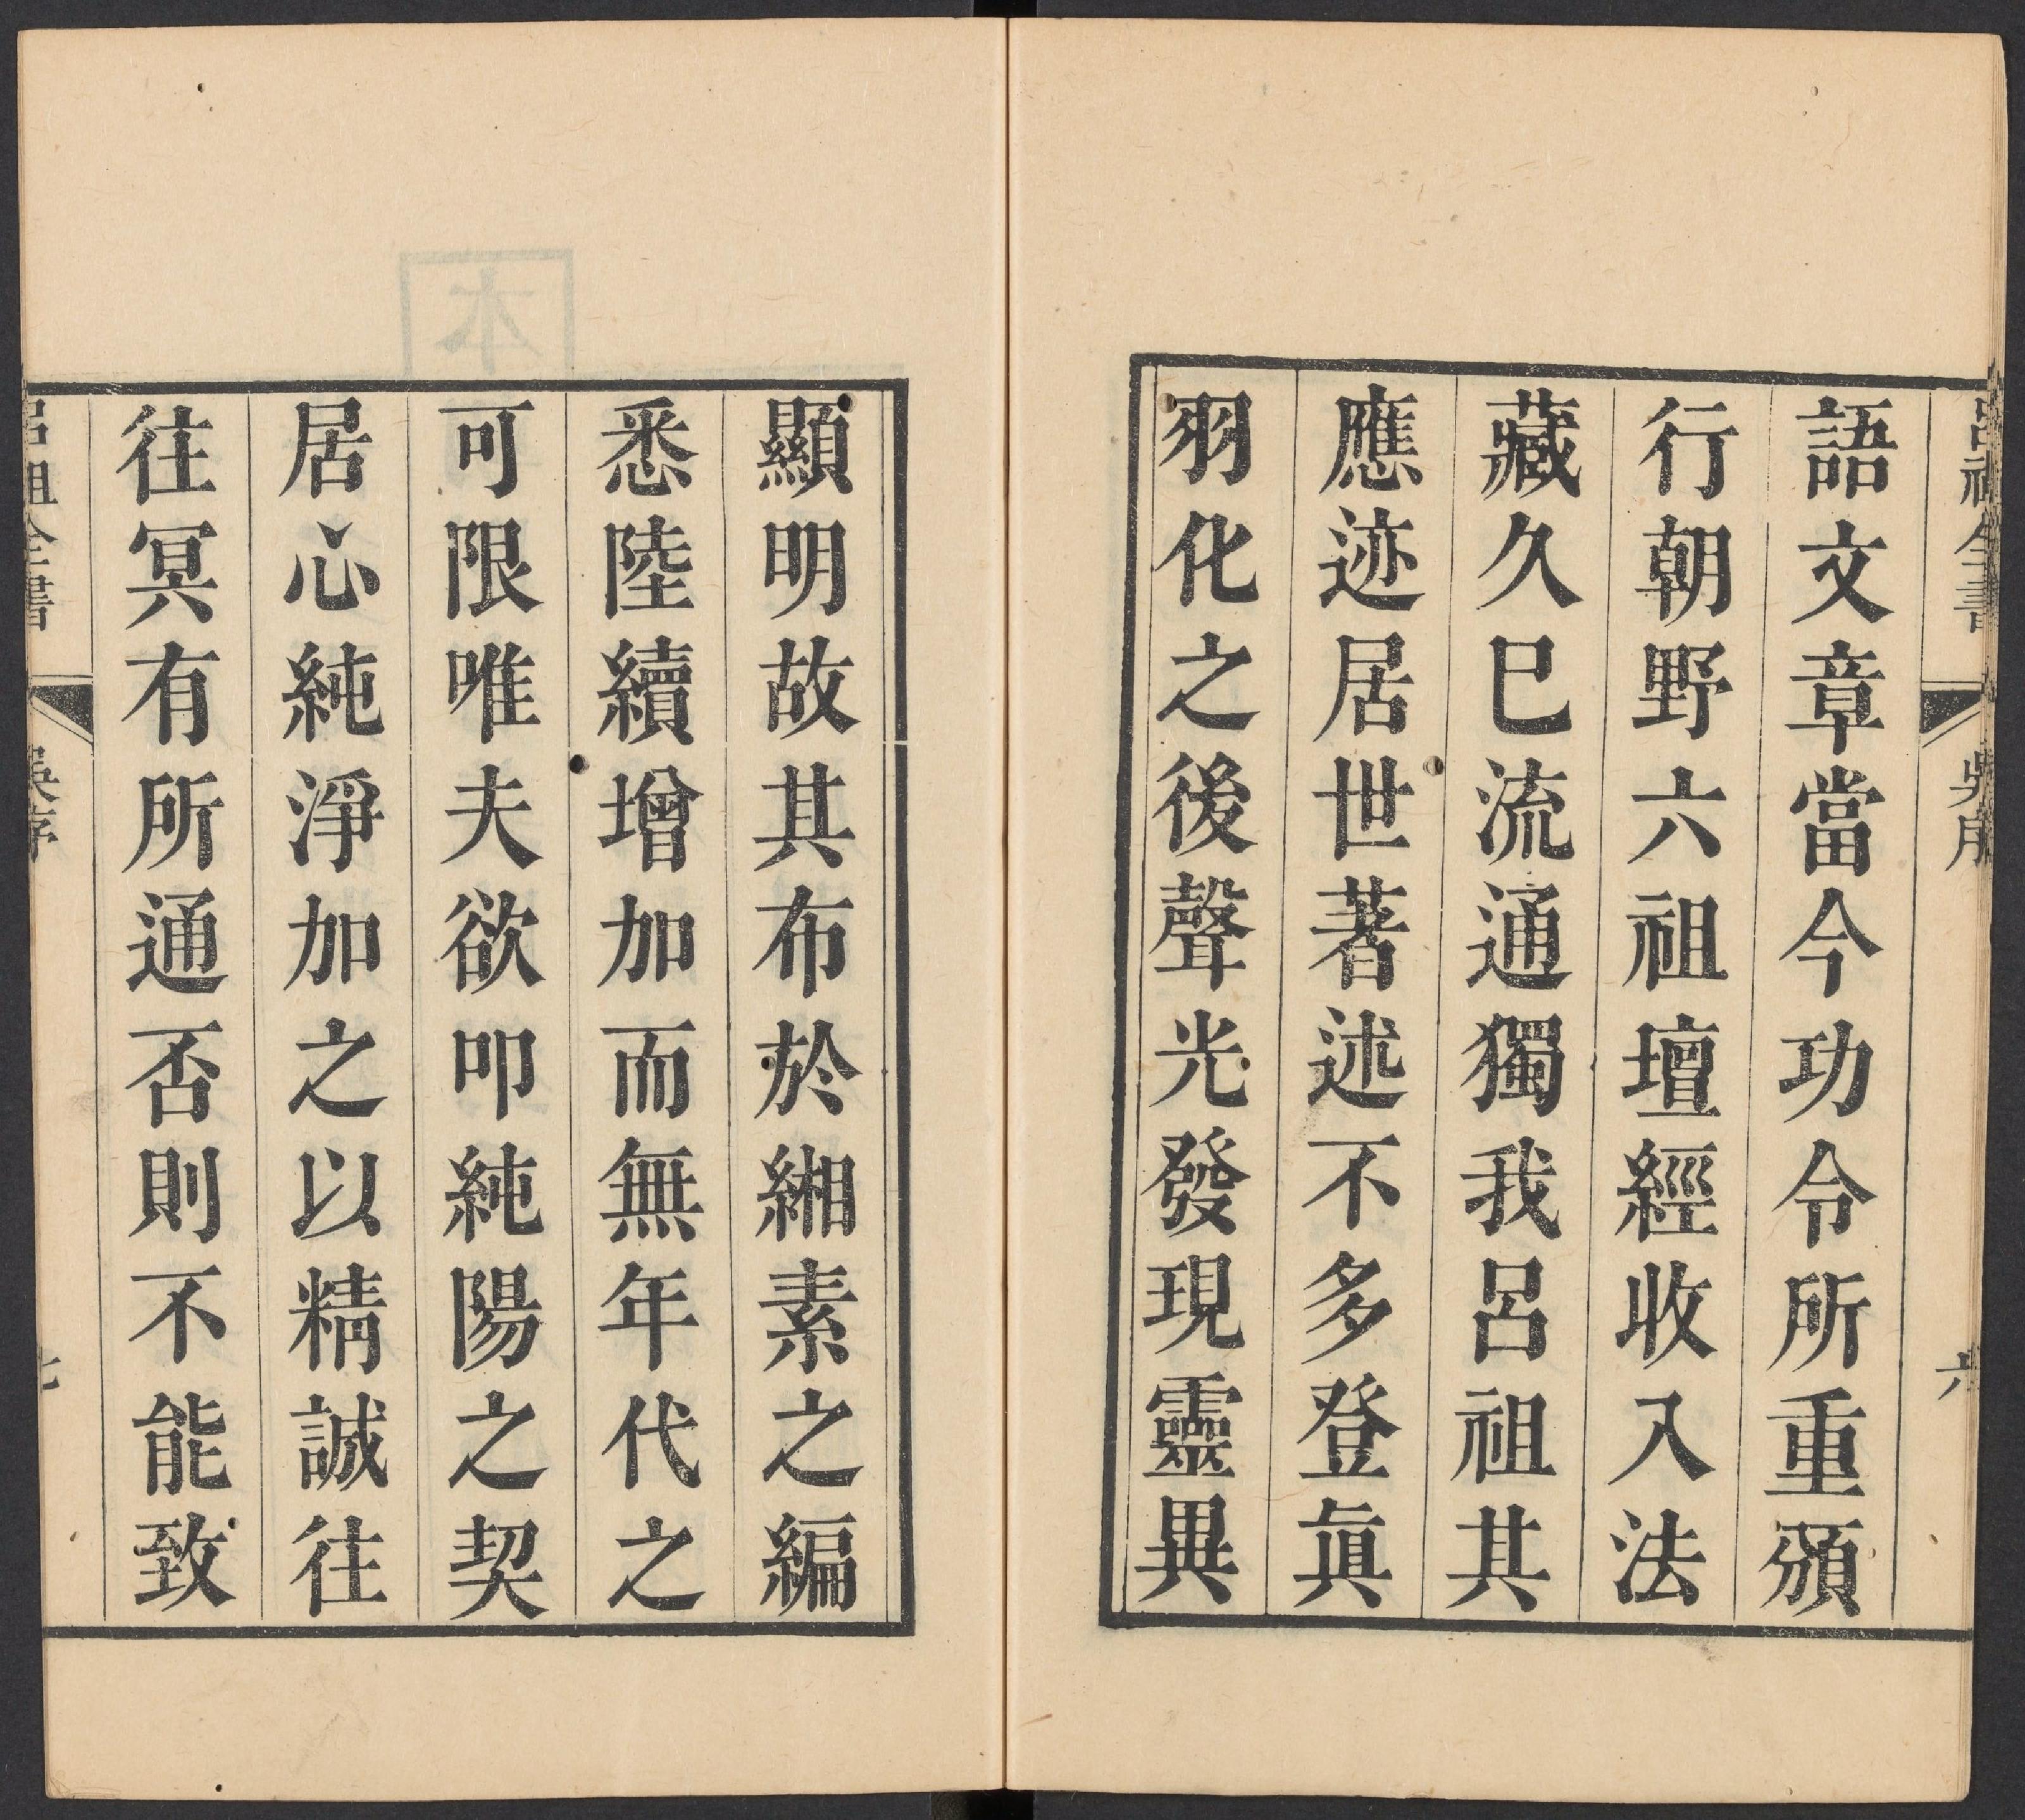 呂祖全書 吳序 六
語文章當今功令所重頒
行朝野六祖壇經收入法
藏久巳流通獨我呂祖其
應迹居世著述不多登眞
羽化之後聲光發現靈異
顯明故其布於緗素之編
悉陸續增加而無年代之
可限唯夫欲叩純陽之契
居心純淨加之以精誠往
往冥有所通否則不能致
呂祖全書 吳序 七
本